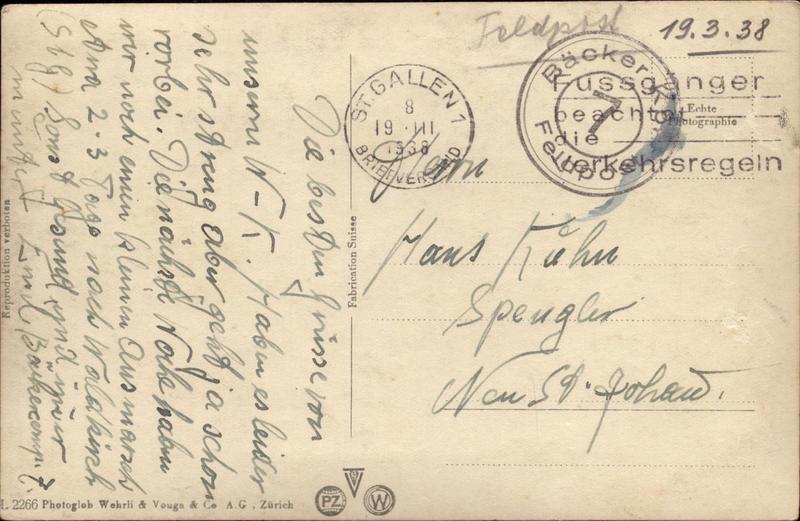 Feldpost
19. 3. 38
ST. GALLEN 1
8
19. III
1938
BRIEFVERSAND
Bäcker-Kp.
7
Feldpost
Fussgänger
beachtet
die
Verkehrsregeln
Echte
Photographie
Herrn
Hans Kühn
Spengler
Neu St. Johann.
Die besten Grüsse von
unserm W-K. Haben es leider
sehr streng aber geht ja schon
vorbei. Die nächste Woche haben
wir noch einen kleinen Ausmarsch
2-3 Tage nach Waldkirch
(St.g.) Sonst gesund und
Emil, Bäckercomp. 7.
Fabrication Suisse
Reproduktion verboten
2266 Photoglob Wehrli & Vouga & Co A.G., Zürich
PZ
V
W